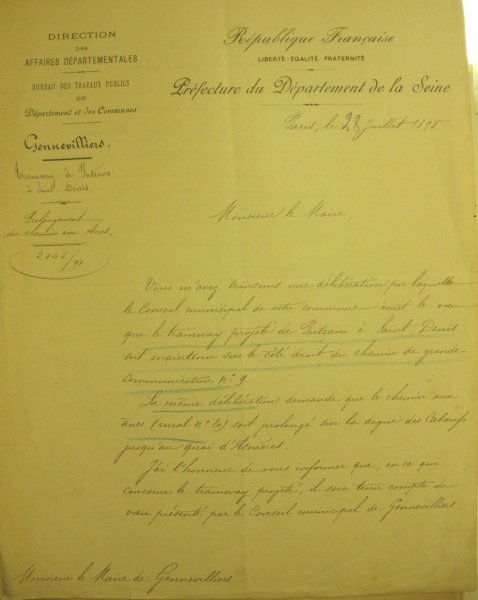 DIRECTION
DES
AFFAIRES DÉPARTEMENTALES
BUREAU DES TRAVAUX PUBLICS
DU
Département et des Communes
Gennevilliers.
Tramway de Puteaux
à Saint-Denis
Prolongement
du chemin aux Anes.
2.045/98
République Française
LIBERTÉ-EGALITÉ-FRATERNITÉ
Préfecture du Département de la Seine
Paris, le 28 Juillet 1898
Monsieur le Maire,
Vous m'avez transmis une délibération par laquelle
le Conseil municipal de votre commune émet le vœu
que le tramway projeté de Puteaux à Saint-Denis
soit maintenu sur le côté droit du chemin de grande
Communication n° 9.
La même délibération demande que le chemin aux
ânes (rural n° 20) soit prolongé sur la digue des
jusqu'au quai d'Asnières.
J'ai l'honneur de vous informer que, en ce qui
concerne le tramway projeté, il sera tenu compte du
vœu présenté par le Conseil municipal de Gennevilliers.
Monsieur le Maire de Gennevilliers.